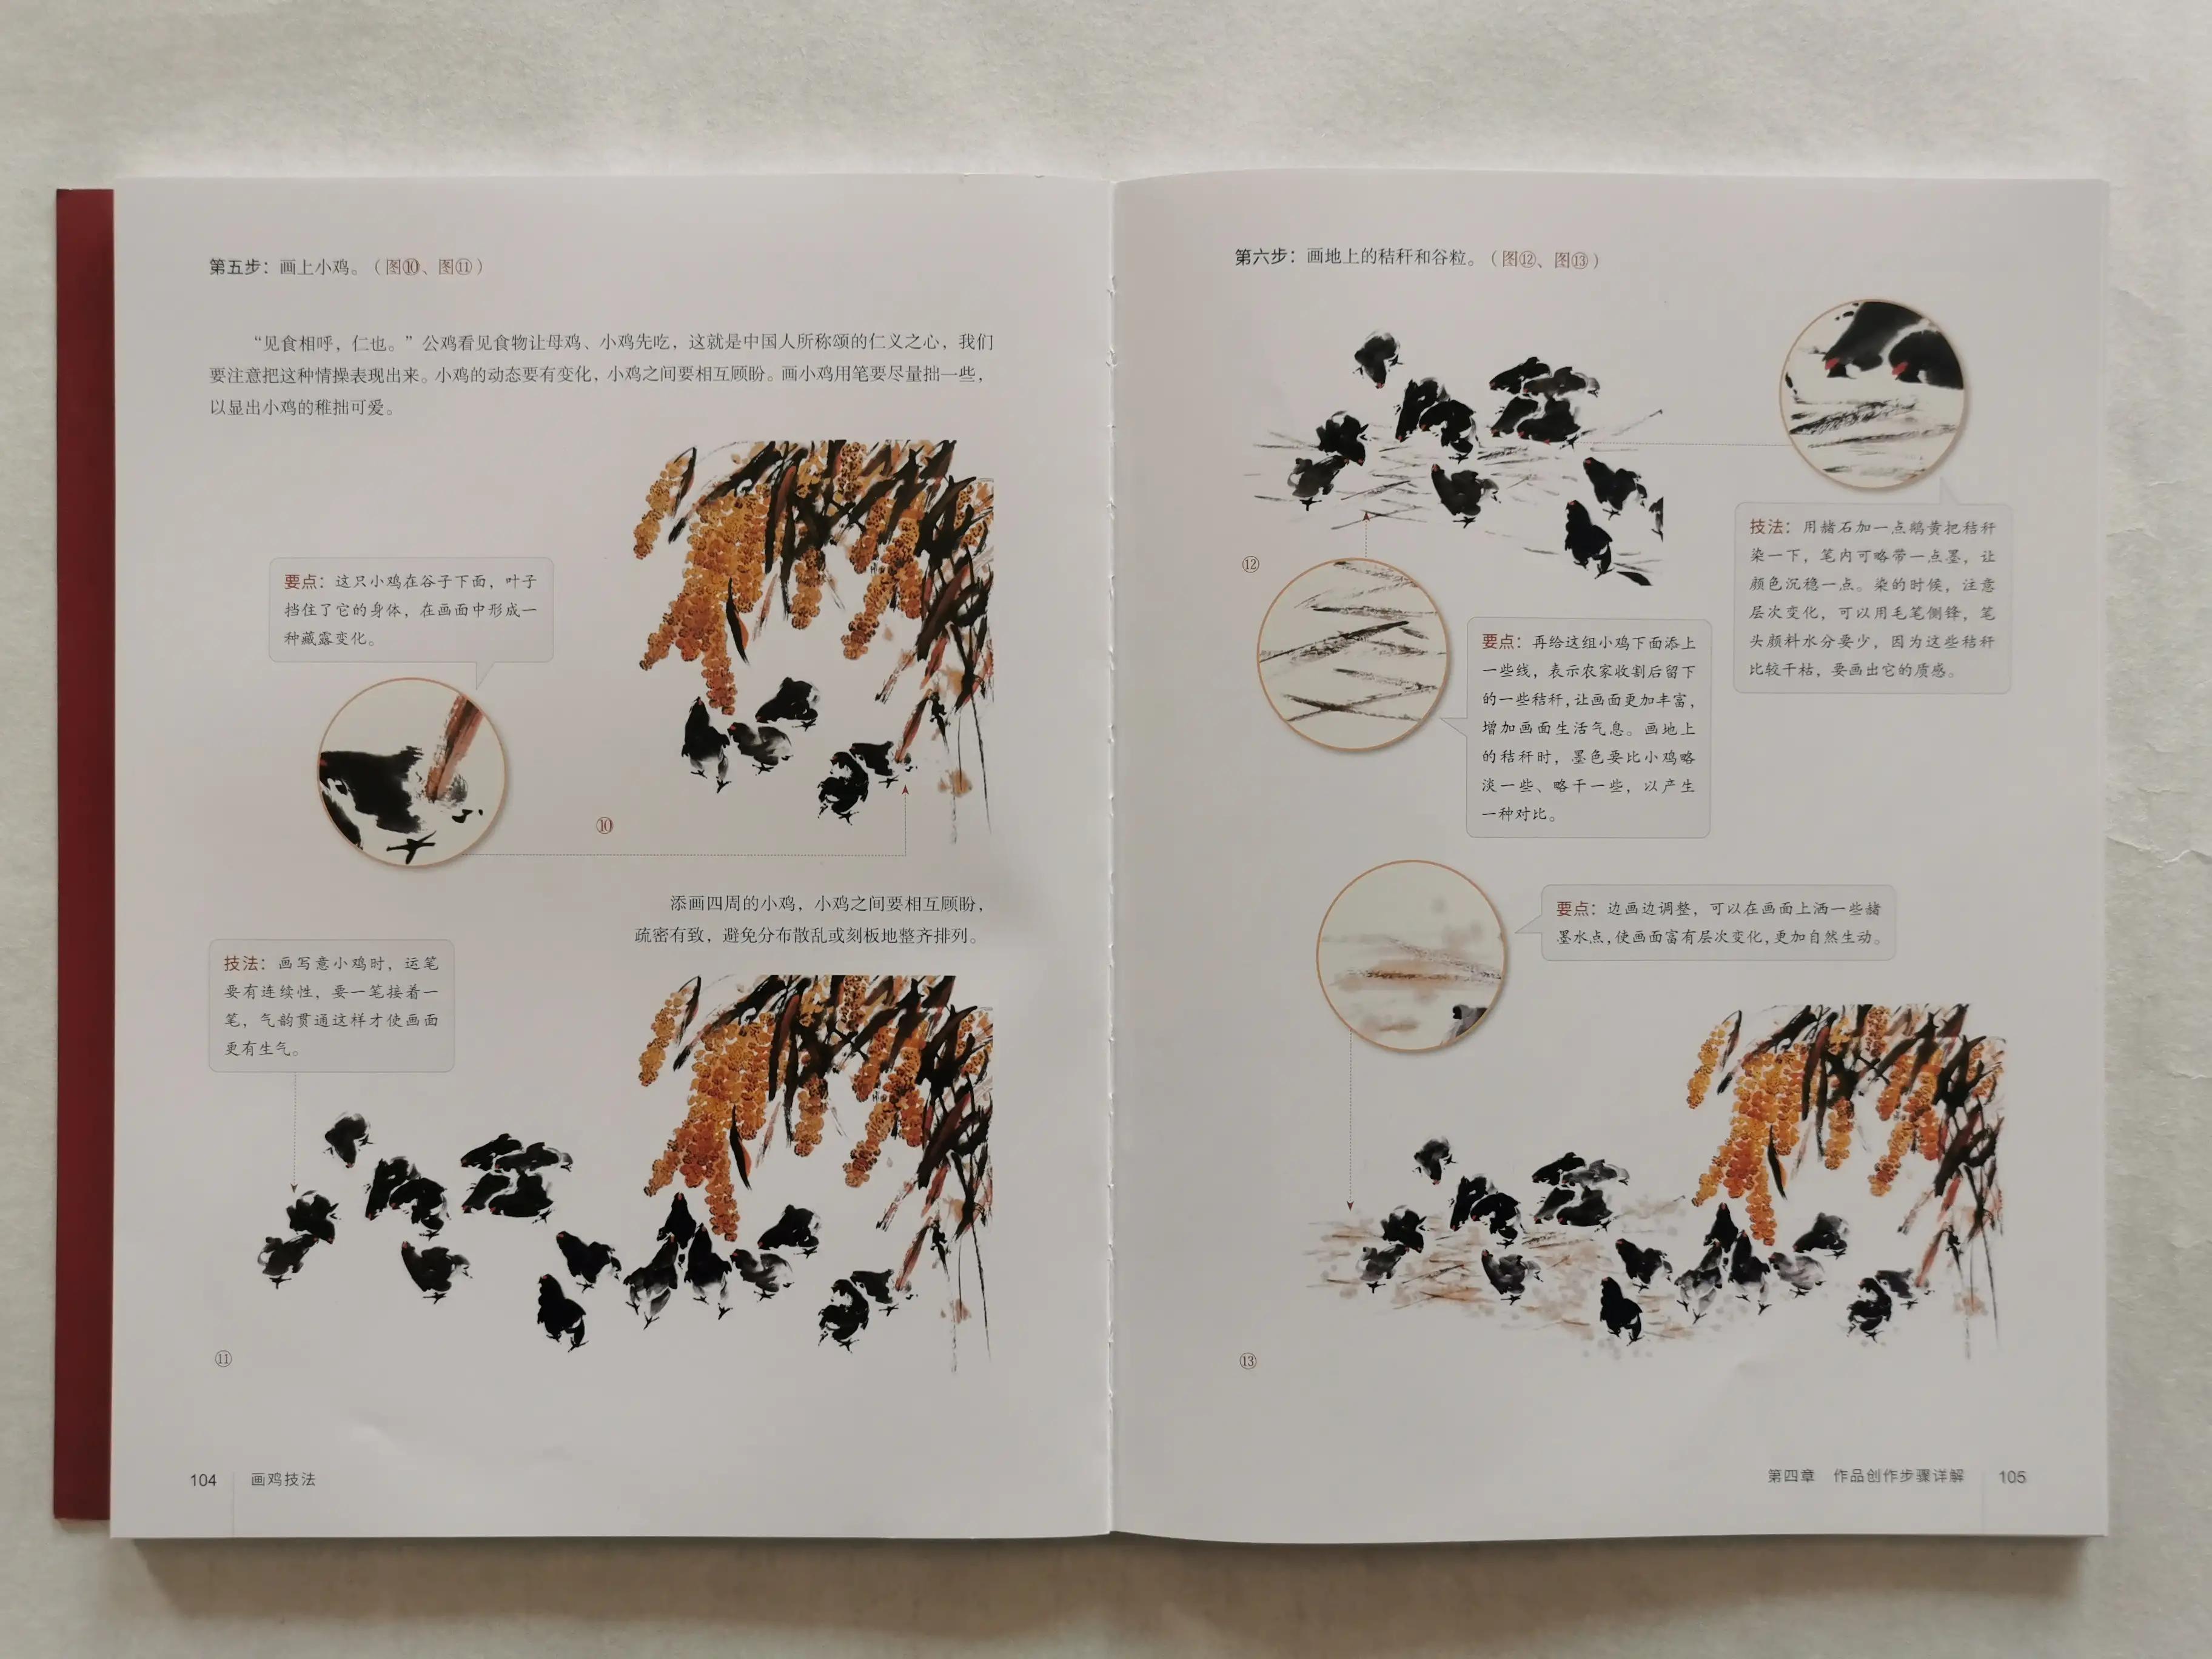 第五步：画上小鸡。（图⑩、图⑪）
“见食相呼，仁也。”公鸡看见食物让母鸡、小鸡先吃，这就是中国人所称颂的仁义之心，我们
要注意把这种情操表现出来。小鸡的动态要有变化，小鸡之间要相互顾盼。画小鸡用笔要尽量拙一些，
以显出小鸡的稚拙可爱。
要点：这只小鸡在谷子下面，叶子
挡住了它的身体，在画面中形成一
种藏露变化。
⑩
添画四周的小鸡，小鸡之间要相互顾盼，
疏密有致，避免分布散乱或刻板地整齐排列。
技法：画写意小鸡时，运笔
要有连续性，要一笔接着一
笔，气韵贯通这样才使画面
更有生气。
⑪
104 画鸡技法
第六步：画地上的秸秆和谷粒。（图⑫、图⑬）
⑫
技法：用赭石加一点鹅黄把秸秆
染一下，笔内可略带一点墨，让
颜色沉稳一点。染的时候，注意
层次变化，可以用毛笔侧锋，笔
头颜料水分要少，因为这些秸秆
比较干枯，要画出它的质感。
要点：再给这组小鸡下面添上
一些线，表示农家收割后留下
的一些秸秆，让画面更加丰富，
增加画面生活气息。画地上
的秸秆时，墨色要比小鸡略
淡一些、略干一些，以产生
一种对比。
要点：边画边调整，可以在画面上洒一些赭
墨水点，使画面富有层次变化，更加自然生动。
⑬
第四章 作品创作步骤详解 105